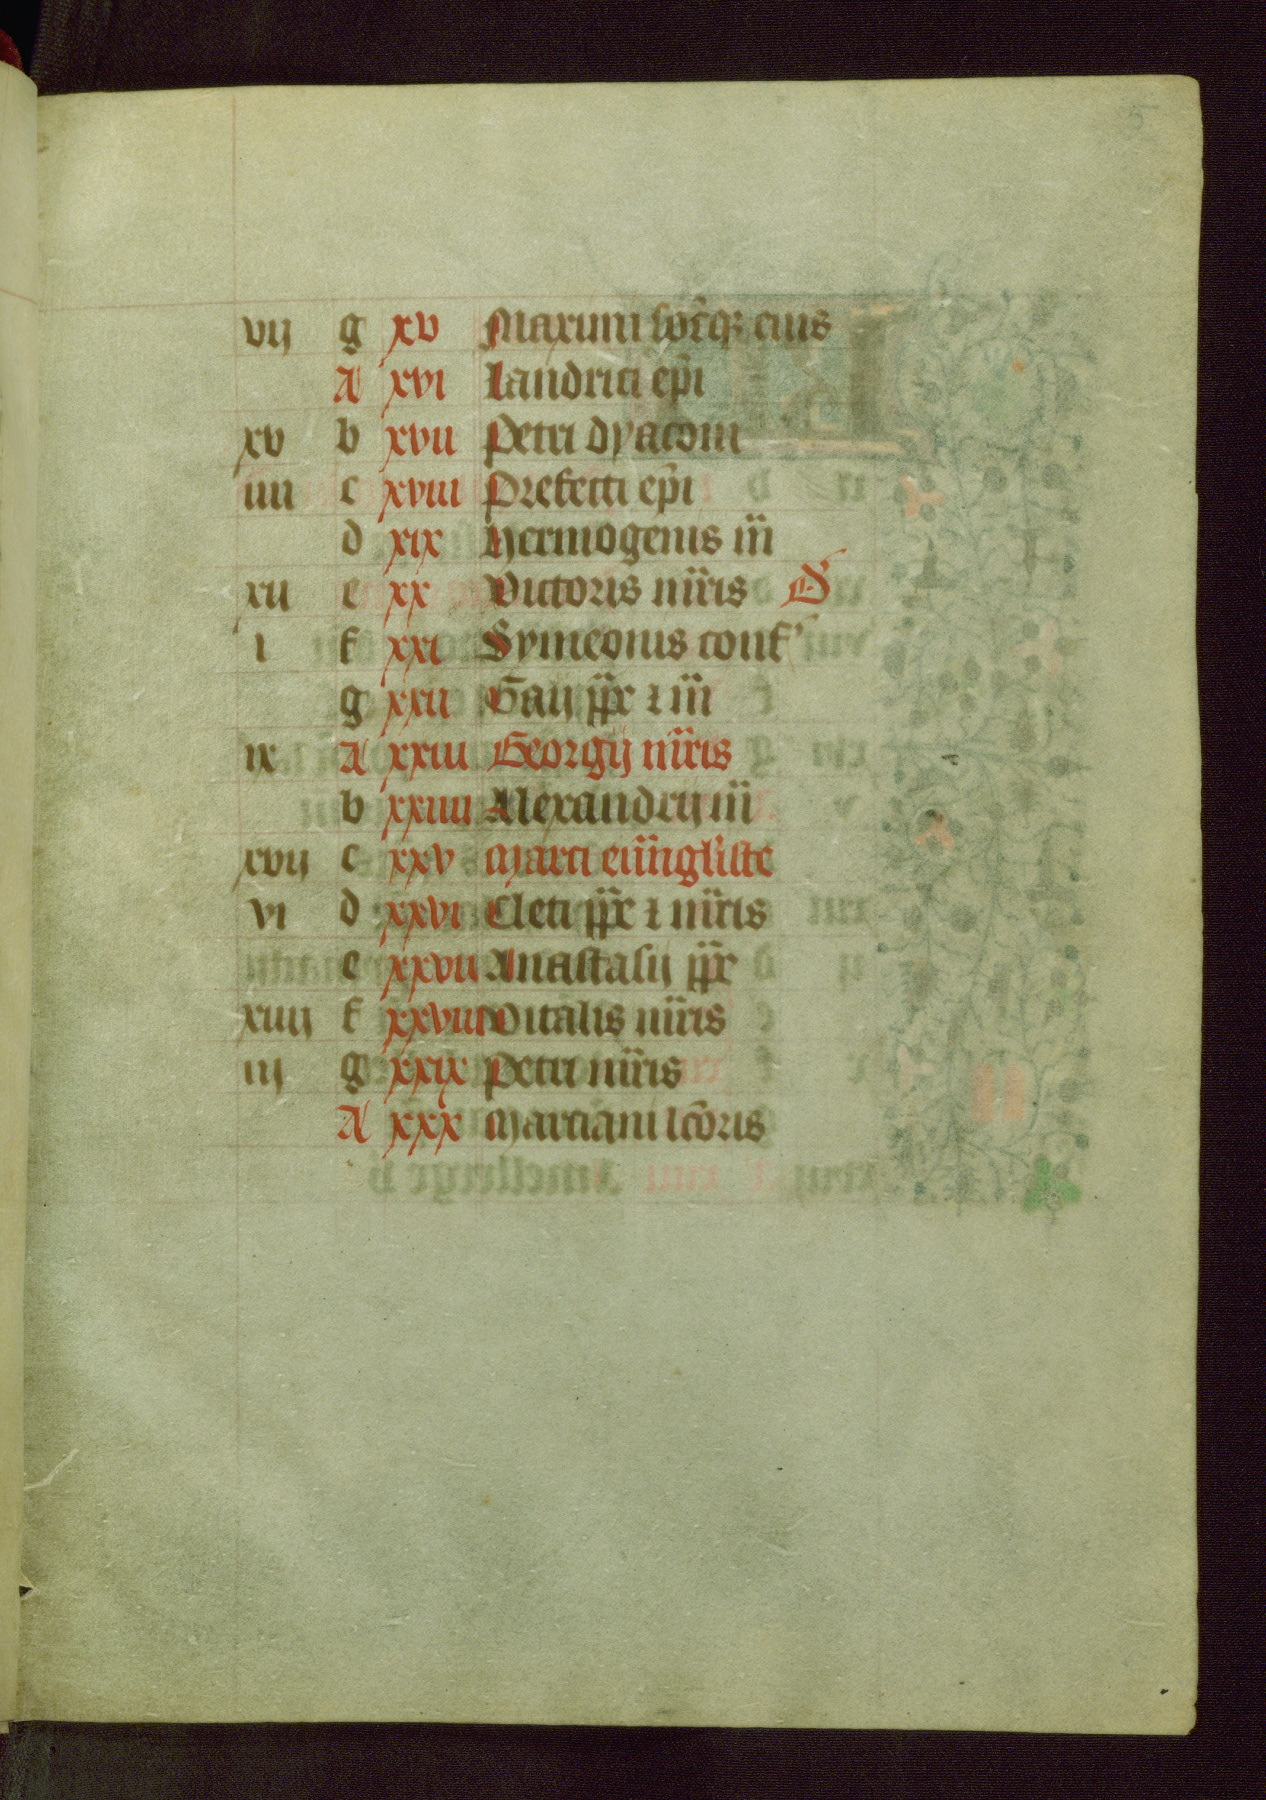 5
vij g xv Maximi soc̄oꝝ eius
A xvi Landrici ep̄i
xv b xvii Petri dyaconi
iiii c xviii Prefecti ep̄i
d xix Hermogenis m̄
xii e xx Victoris mr̄is
i f xxi Symeonis conf'
g xxii Gaij pp̄e ⁊ m̄
ix A xxiii Georgij mr̄is
b xxiiii Alexandrij m̄
xvij c xxv Marci ewāgliste
vi d xxvi Cleti pp̄e ⁊ mr̄is
e xxvii Anastasij pp̄e
xiiij f xxviii Vitalis mr̄is
iij g xxix Petri mr̄is
A xxx Marciani lc̄oris